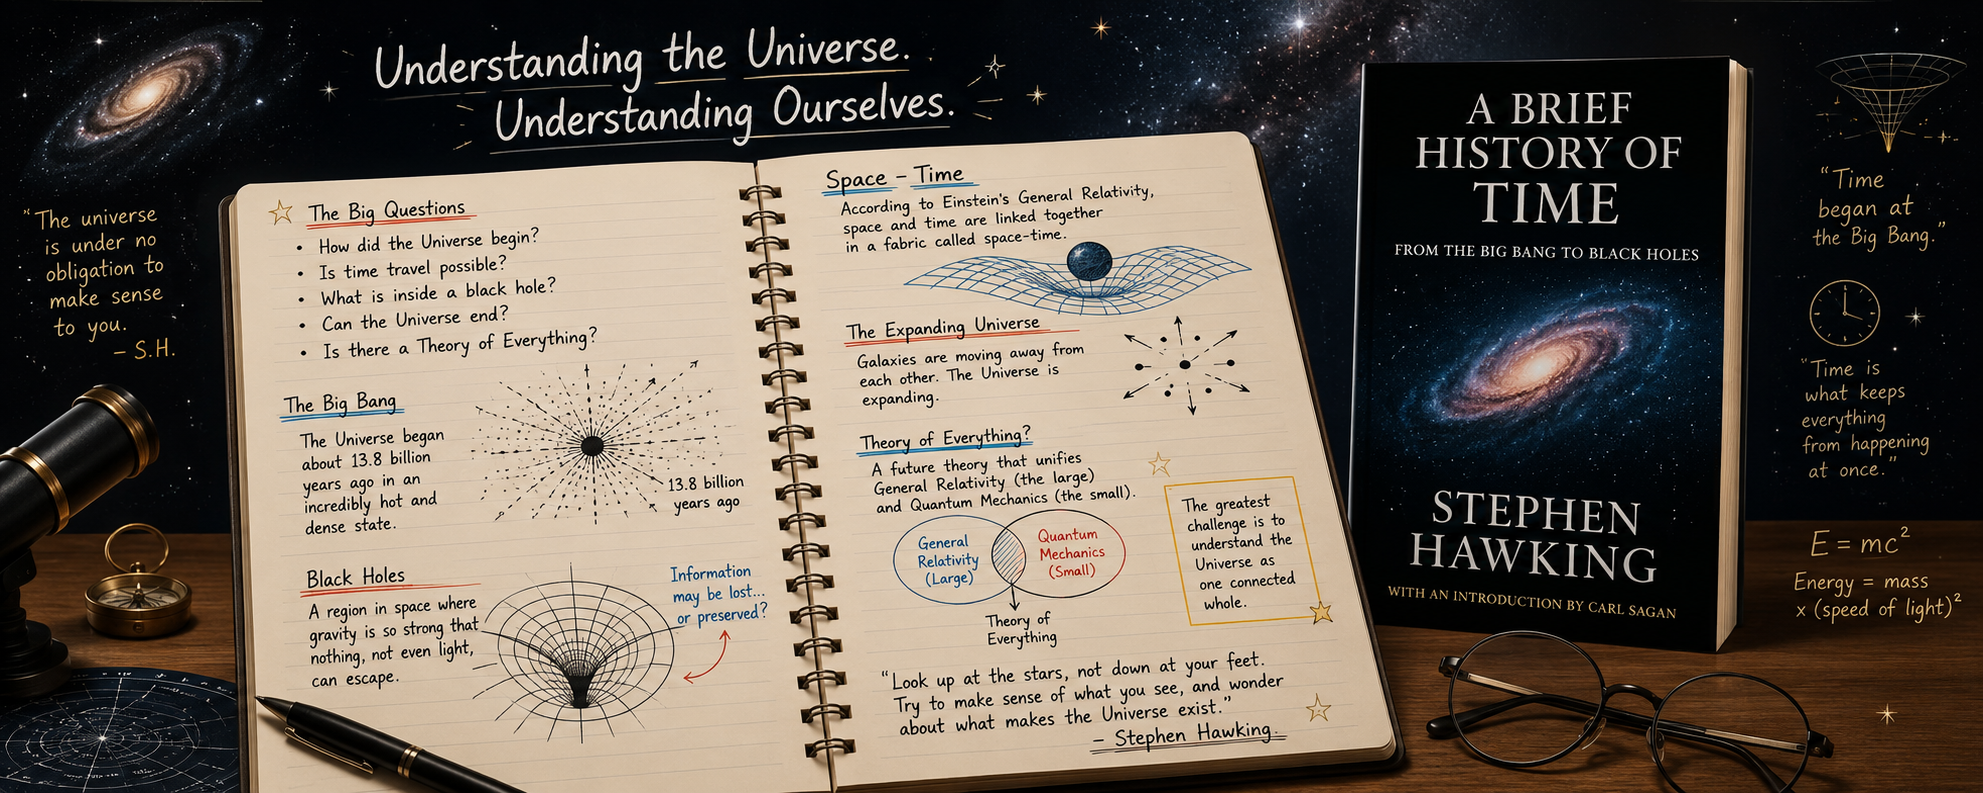 Understanding the Universe.
Understanding Ourselves.
"The universe
is under no
obligation to
make sense
to you.
– S.H.
The Big Questions
• How did the Universe begin?
• Is time travel possible?
• What is inside a black hole?
• Can the Universe end?
• Is there a Theory of Everything?
The Big Bang
The Universe began
about 13.8 billion
years ago in an
incredibly hot and
dense state.
13.8 billion
years ago
Black Holes
A region in space where
gravity is so strong that
nothing, not even light,
can escape.
Information
may be lost...
or preserved?
Space – Time
According to Einstein's General Relativity,
space and time are linked together
in a fabric called space-time.
The Expanding Universe
Galaxies are moving away from
each other. The Universe is
expanding.
Theory of Everything?
A future theory that unifies
General Relativity (the large)
and Quantum Mechanics (the small).
General
Relativity
(Large)
Quantum
Mechanics
(Small)
Theory of
Everything
The greatest
challenge is to
understand the
Universe as
one connected
whole.
"Look up at the stars, not down at your feet.
Try to make sense of what you see, and wonder
about what makes the Universe exist."
– Stephen Hawking.
A BRIEF
HISTORY OF
TIME
FROM THE BIG BANG TO BLACK HOLES
STEPHEN
HAWKING
WITH AN INTRODUCTION BY CARL SAGAN
"Time
began at
the Big Bang."
"Time is
what keeps
everything
from happening
at once."
E = mc²
Energy = mass
x (speed of light)²